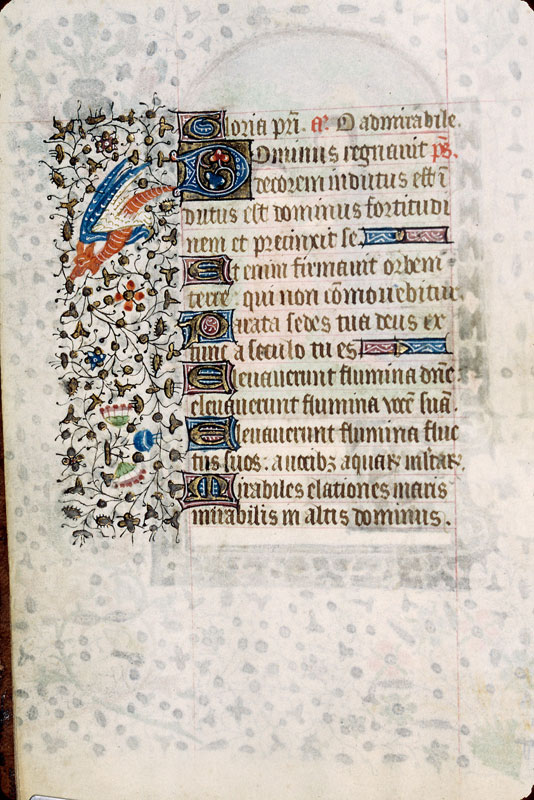 Gloria pr̄i. a. O admirabile.
Dominus regnavit ps.
decorem indutus est ī
dutus est dominus fortitudi
nem et precinxit se.
Et enim firmavit orbem
terre: qui non cōmovebitur.
Parata sedes tua deus ex
tunc a seculo tu es
Elevaverunt flumina dn̄e:
elevaverunt flumina vocē suā.
Elevaverunt flumina fluc
tus suos: a
Mirabiles elationes maris
mirabilis in altis dominus.